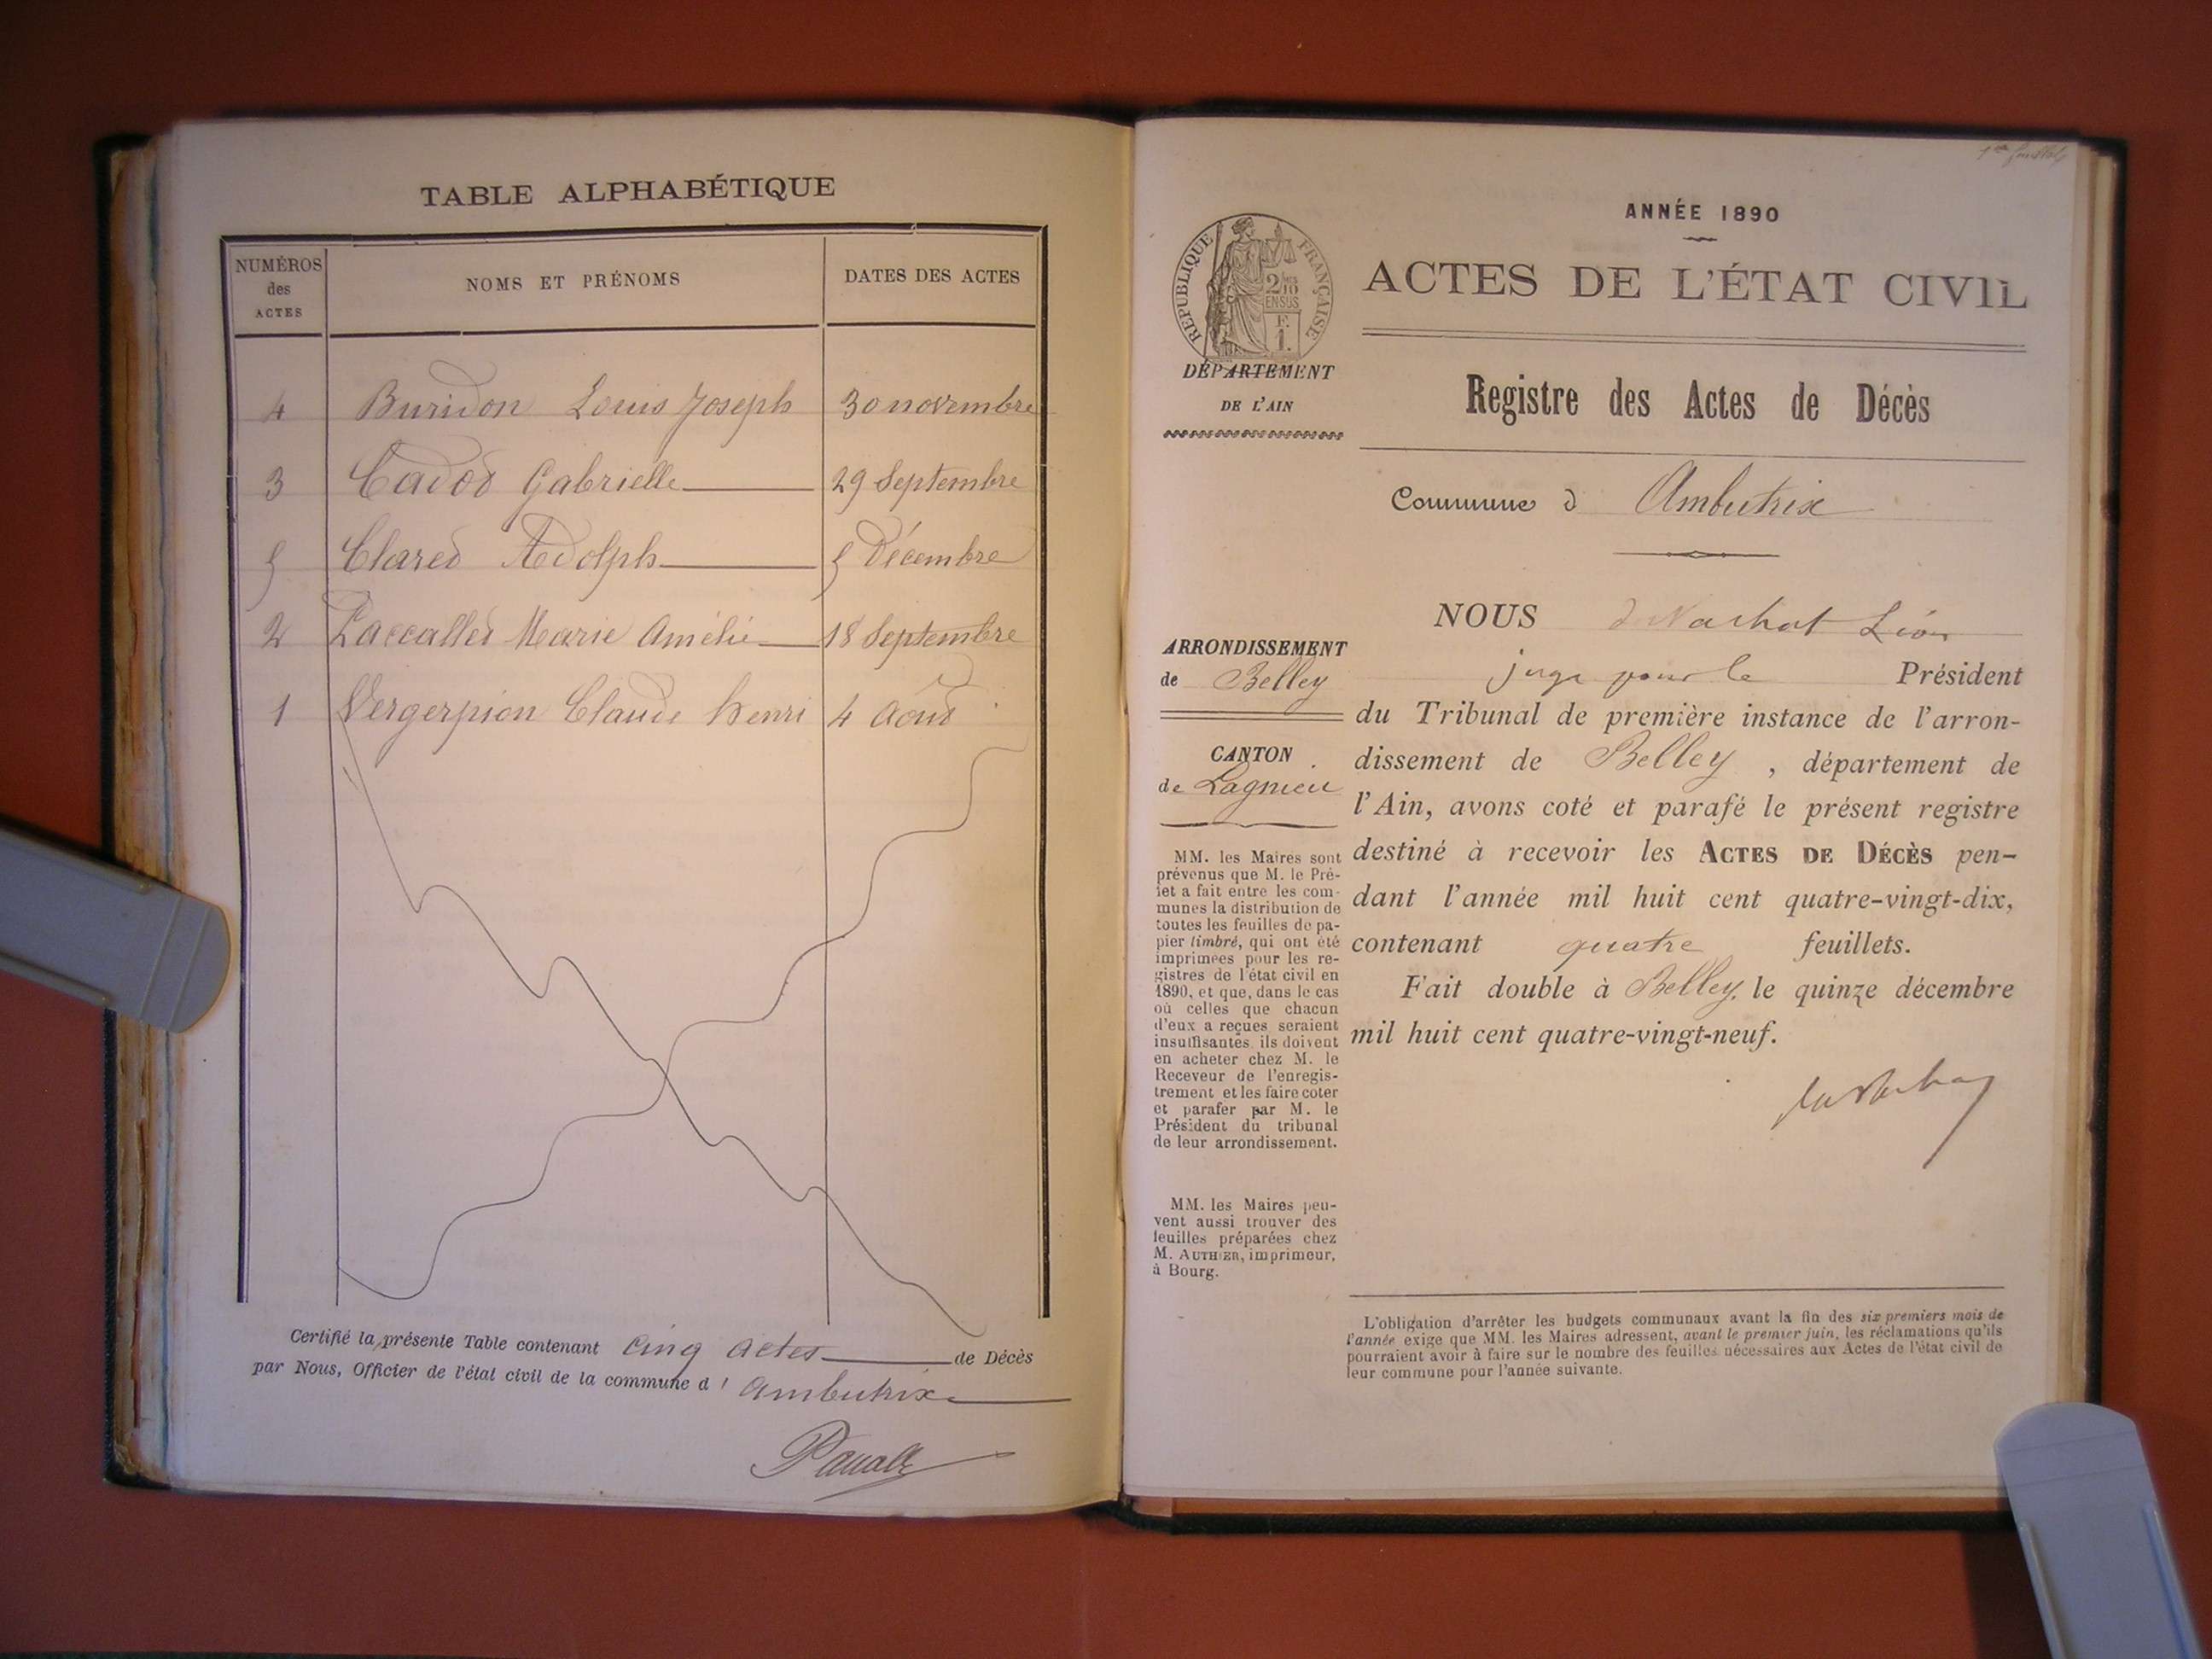 TABLE ALPHABÉTIQUE
NUMÉROS des ACTES
NOMS ET PRÉNOMS
DATES DES ACTES
4 Buridon Louis Joseph 30 novembre
3 Cadot Gabrielle 29 Septembre
5 Claret Adolph 5 Décembre
2 Marie Amélie 18 Septembre
1 Vergerpion Claude henri 4 Août
Certifié la présente Table contenant Cinq actes de Décès
par Nous, Officier de l'état civil de la commune d' ambutrix
1er feuillet
ANNÉE 1890
ACTES DE L'ÉTAT CIVIL
RÉPUBLIQUE FRANÇAISE
2/10 EN SUS
F. 1.
DÉPARTEMENT
DE L'AIN
Registre des Actes de Décès
Commune d Ambutrix
ARRONDISSEMENT
de Belley
CANTON
de Lagnieu
MM. les Maires sont
prévenus que M. le Pré-
fet a fait entre les com-
munes la distribution de
toutes les feuilles de pa-
pier timbré, qui ont été
imprimées pour les re-
gistres de l'état civil en
1890, et que, dans le cas
où celles que chacun
d'eux a reçues seraient
insuffisantes, ils doivent
en acheter chez M. le
Receveur de l'enregis-
trement et les faire coter
et parafer par M. le
Président du tribunal
de leur arrondissement.
MM. les Maires peu-
vent aussi trouver des
feuilles préparées chez
M. AUTHIER, imprimeur,
à Bourg.
NOUS Léon
juge pour le Président
du Tribunal de première instance de l'arron-
dissement de Belley, département de
l'Ain, avons coté et parafé le présent registre
destiné à recevoir les ACTES DE DÉCÈS pen-
dant l'année mil huit cent quatre-vingt-dix,
contenant quatre feuillets.
Fait double à Belley, le quinze décembre
mil huit cent quatre-vingt-neuf.
L'obligation d'arrêter les budgets communaux avant la fin des six premiers mois de
l'année exige que MM. les Maires adressent, avant le premier juin, les réclamations qu'ils
pourraient avoir à faire sur le nombre des feuilles nécessaires aux Actes de l'état civil de
leur commune pour l'année suivante.